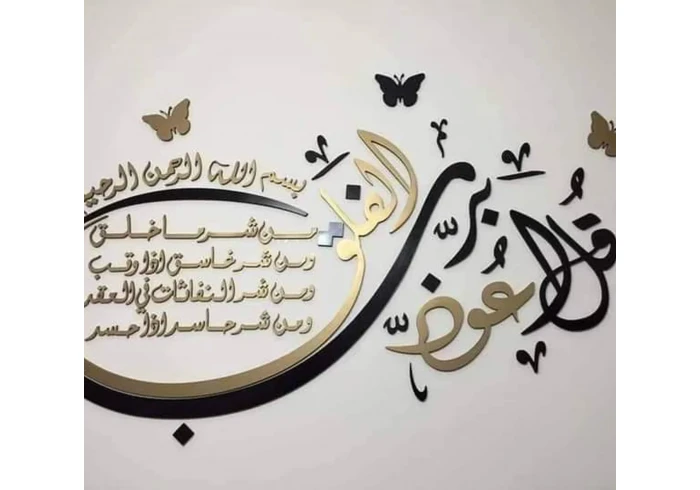 قل أعوذ برب الفلق
بسم الله الرحمن الرحيم
من شر ما خلق
ومن شر غاسق اذا وقب
ومن شر النفاثات في العقد
ومن شر حاسد اذا حسد